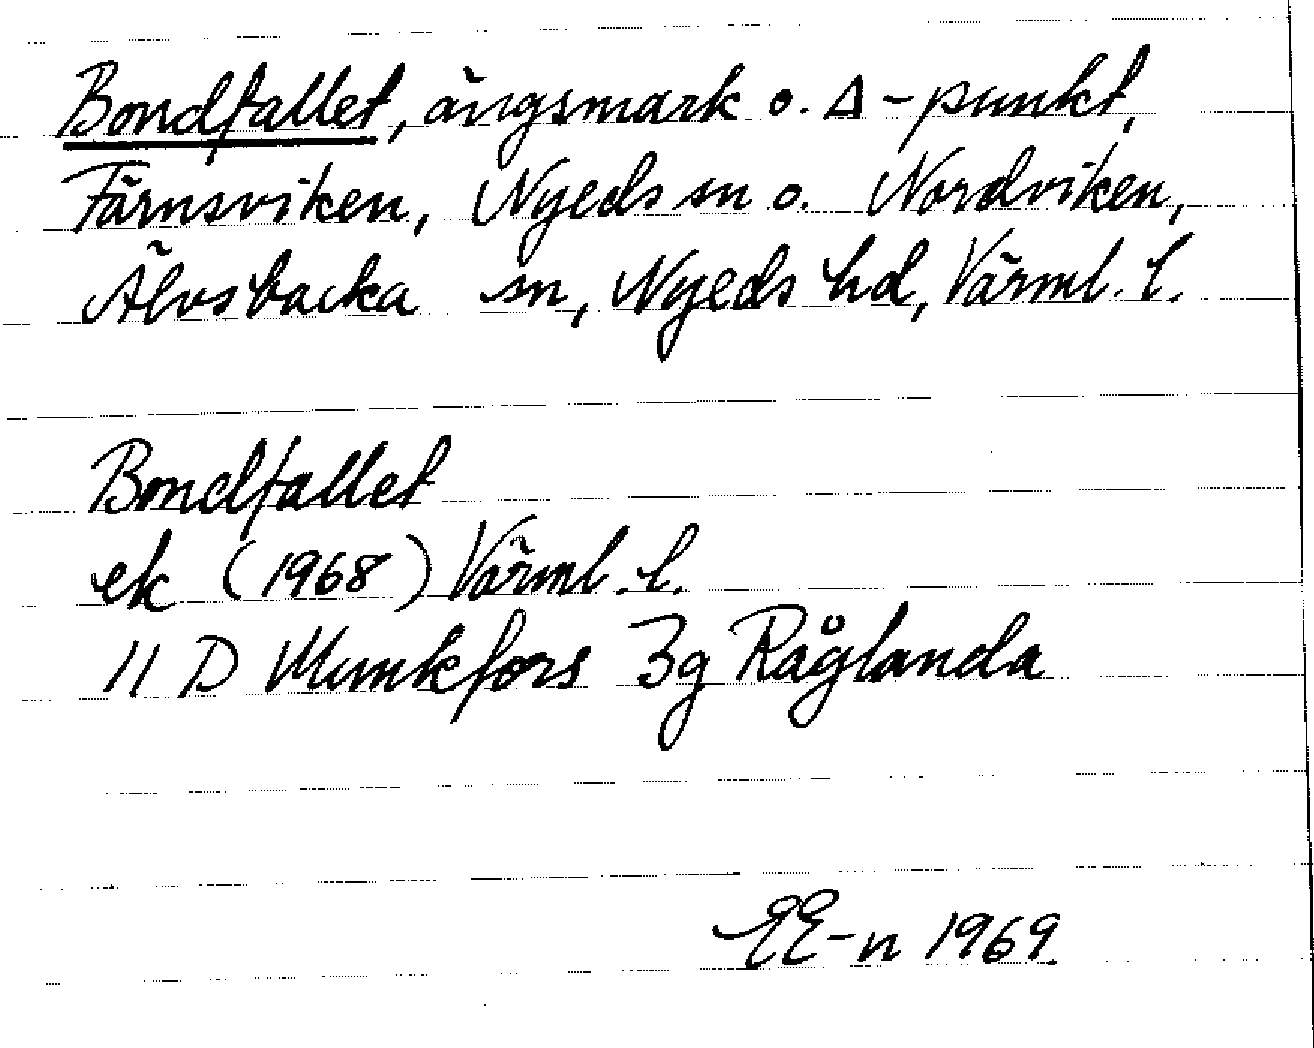 Bondfallet, ängsmark o. Δ-punkt,
Färnsviken, Nyeds sn o. Nordviken,
Älvsbacka sn, Nyeds hd, Värml. l.
Bondfallet
ek (1968) Värml. l.
11 D Munkfors 3g Råglanda
EE-n 1969.